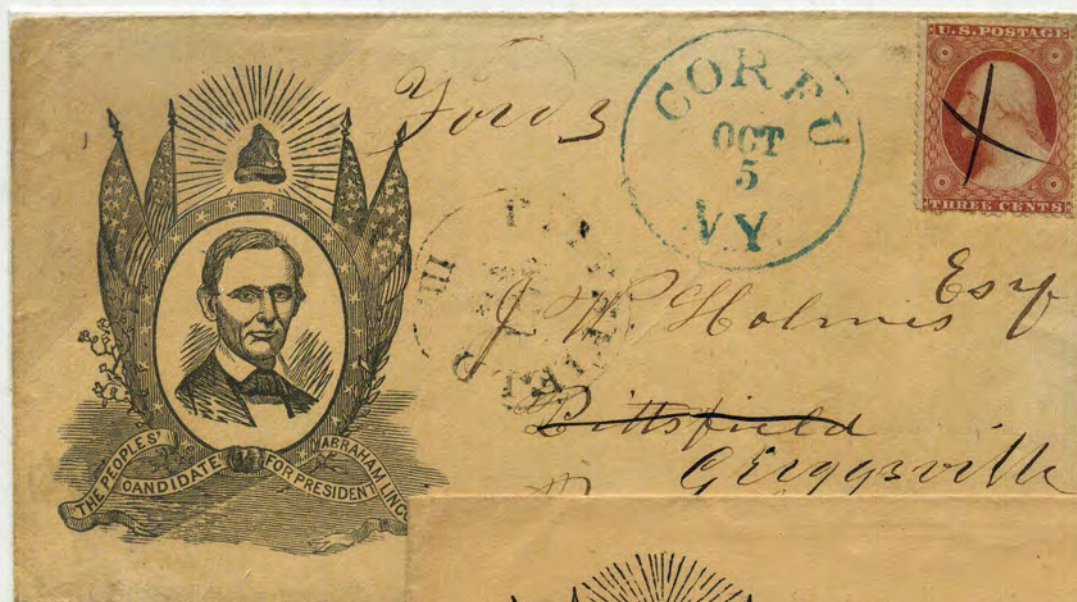 U.S. POSTAGE
THREE CENTS
CORFU
OCT
5
N.Y.
Ford 3
J W Holmes Esq
Pittsfield
Griggsville
ELD
Ill
THE PEOPLES' CANDIDATE FOR PRESIDENT ABRAHAM LINC